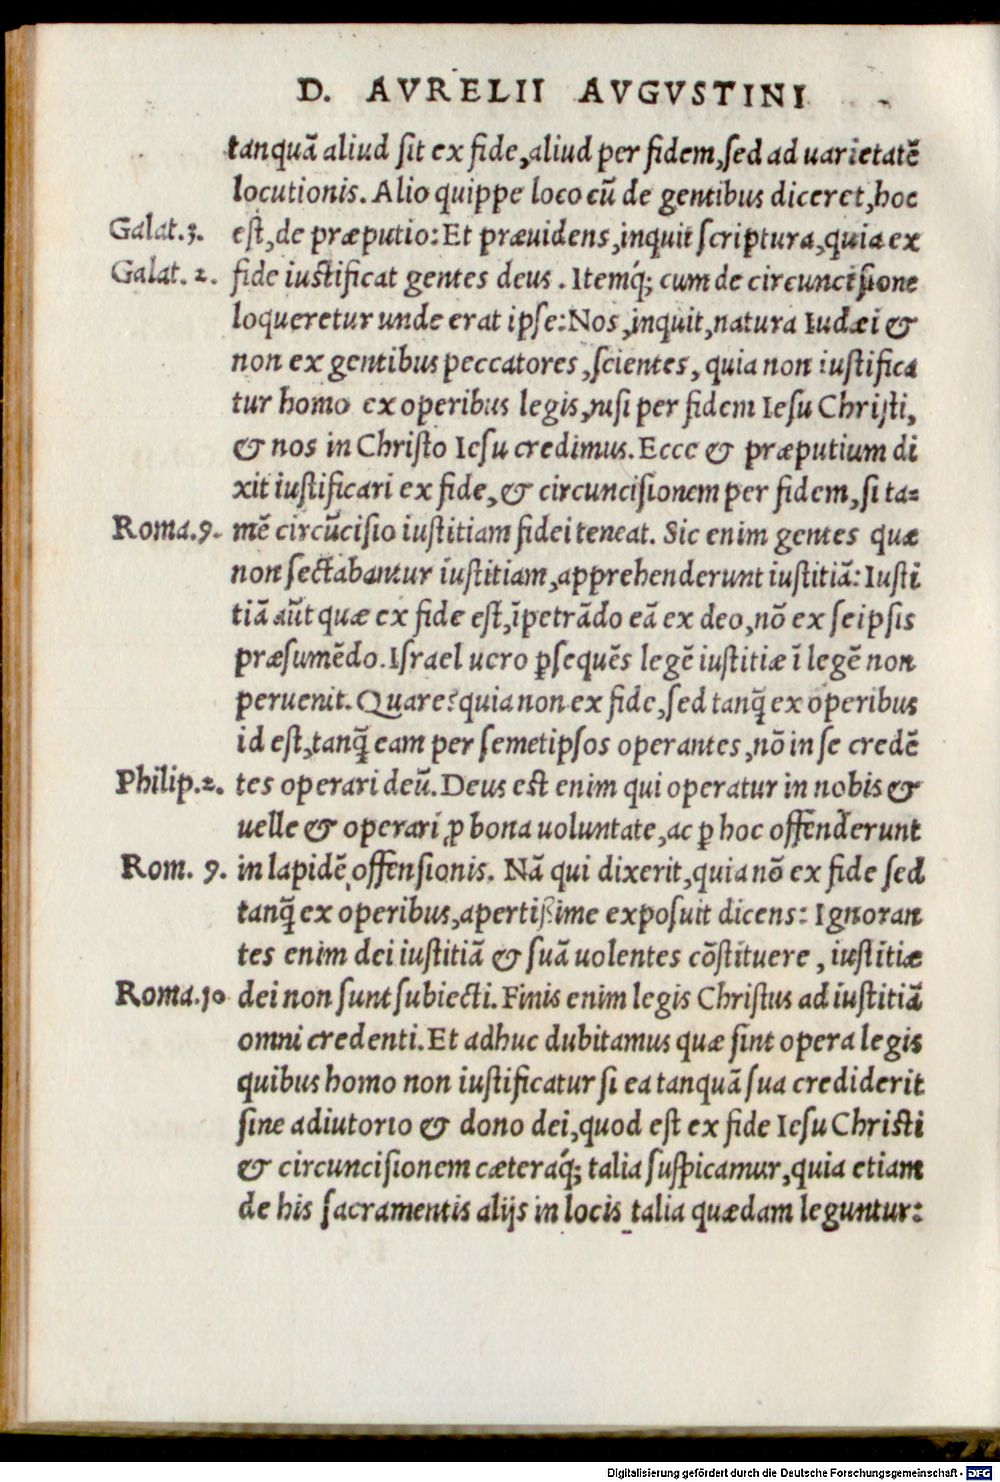 D. AVRELII AVGVSTINI
tanquã aliud sit ex fide, aliud per fidem, sed ad uarietatẽ
locutionis. Alio quippe loco cũ de gentibus diceret, hoc
Galat.3. est, de præputio: Et præuidens, inquit scriptura, quia ex
Galat. 2. fide iustificat gentes deus. Itemq́; cum de circuncisione
loqueretur unde erat ipse: Nos, inquit, natura Iudæi &
non ex gentibus peccatores, scientes, quia non iustifica
tur homo ex operibus legis, nisi per fidem Iesu Christi,
& nos in Christo Iesu credimus. Ecce & præputium di
xit iustificari ex fide, & circuncisionem per fidem, si ta=
Roma.9. mẽ circũcisio iustitiam fidei teneat. Sic enim gentes quæ
non sectabantur iustitiam, apprehenderunt iustitiã: Iusti
tiã aũt quæ ex fide est, ĩpetrãdo eã ex deo, nõ ex seipsis
præsumẽdo. Israel uero ꝑsequẽs legẽ iustitiæ ĩ legẽ non
peruenit. Quare? quia non ex fide, sed tanq̃ ex operibus
id est, tanq̃ eam per semetipsos operantes, nõ in se credẽ
Philip.2. tes operari deũ. Deus est enim qui operatur in nobis &
uelle & operari ꝓ bona uoluntate, ac ꝑ hoc offenderunt
Rom. 9. in lapidẽ offensionis. Nã qui dixerit, quia nõ ex fide sed
tanq̃ ex operibus, apertißime exposuit dicens: Ignoran
tes enim dei iustitiã & suã uolentes cõstituere, iustitiæ
Roma.10 dei non sunt subiecti. Finis enim legis Christus ad iustitiã
omni credenti. Et adhuc dubitamus quæ sint opera legis
quibus homo non iustificatur si ea tanquã sua crediderit
sine adiutorio & dono dei, quod est ex fide Iesu Christi
& circuncisionem cæteraq́; talia suspicamur, quia etiam
de his sacramentis alijs in locis talia quædam leguntur:
Digitalisierung gefördert durch die Deutsche Forschungsgemeinschaft - DFG